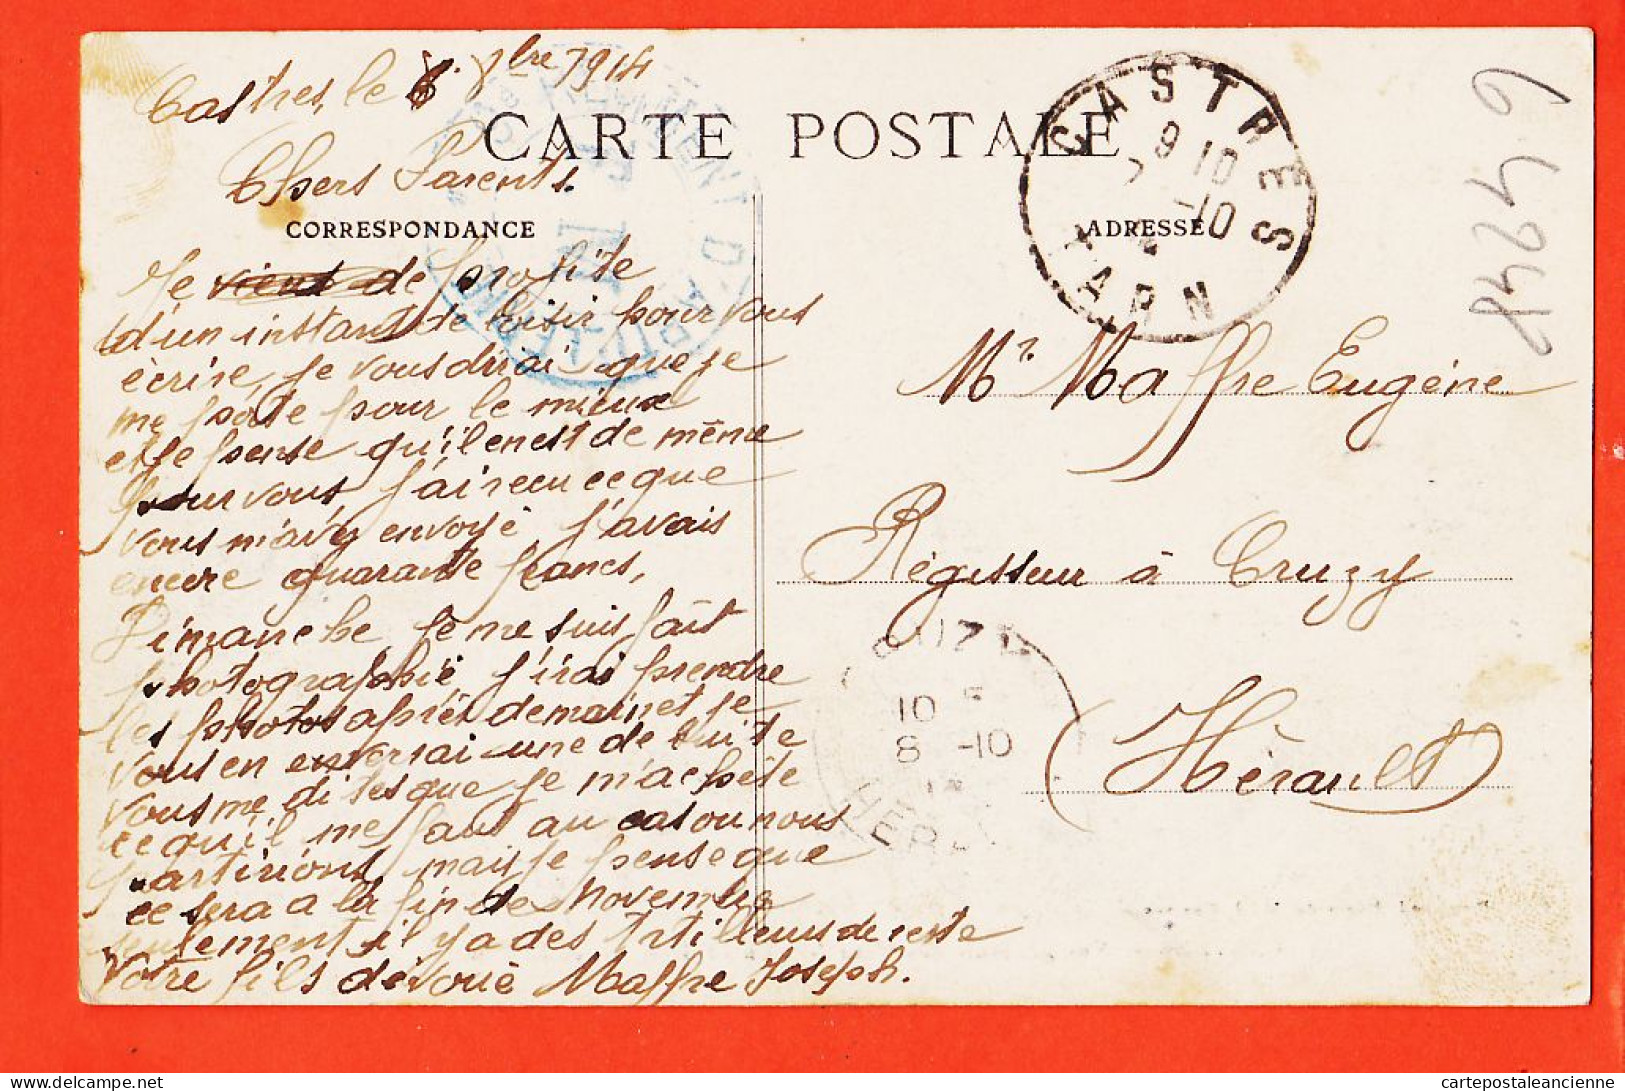 Castres, le 6. 8bre 1914
CARTE POSTALE
Chers Parents.
CORRESPONDANCE
Je vient de profite
d'un instant de loisir pour vous
écrire, je vous dirai que je
me porte pour le mieux
et je pense qu'il en est de même
pour vous, j'ai recu ce que
vous m'avez envoyé, j'avais
encore quarante francs,
Dimanche je me suis fait
photographié j'irai prendre
les photos après demain et je
vous en enverrai une de suite
vous me dites que je m'achète
ce qu'il me faut au cas ou nous
partirions, mais je pense que
ce sera a la fin de Novembre
seulement il y a des artilleurs de reste
Votre fils dévoué Maffre Joseph.
CASTRES
9 10
7 -10
TARN
ADRESSE
Mr. Maffre Eugéne
Régisseur à Cruzy
(Hérault)
10
8 -10
RÉGIMENT D'ARTILLERIE
64248
www.cartepostaleancienne.com
cartepostaleancienne